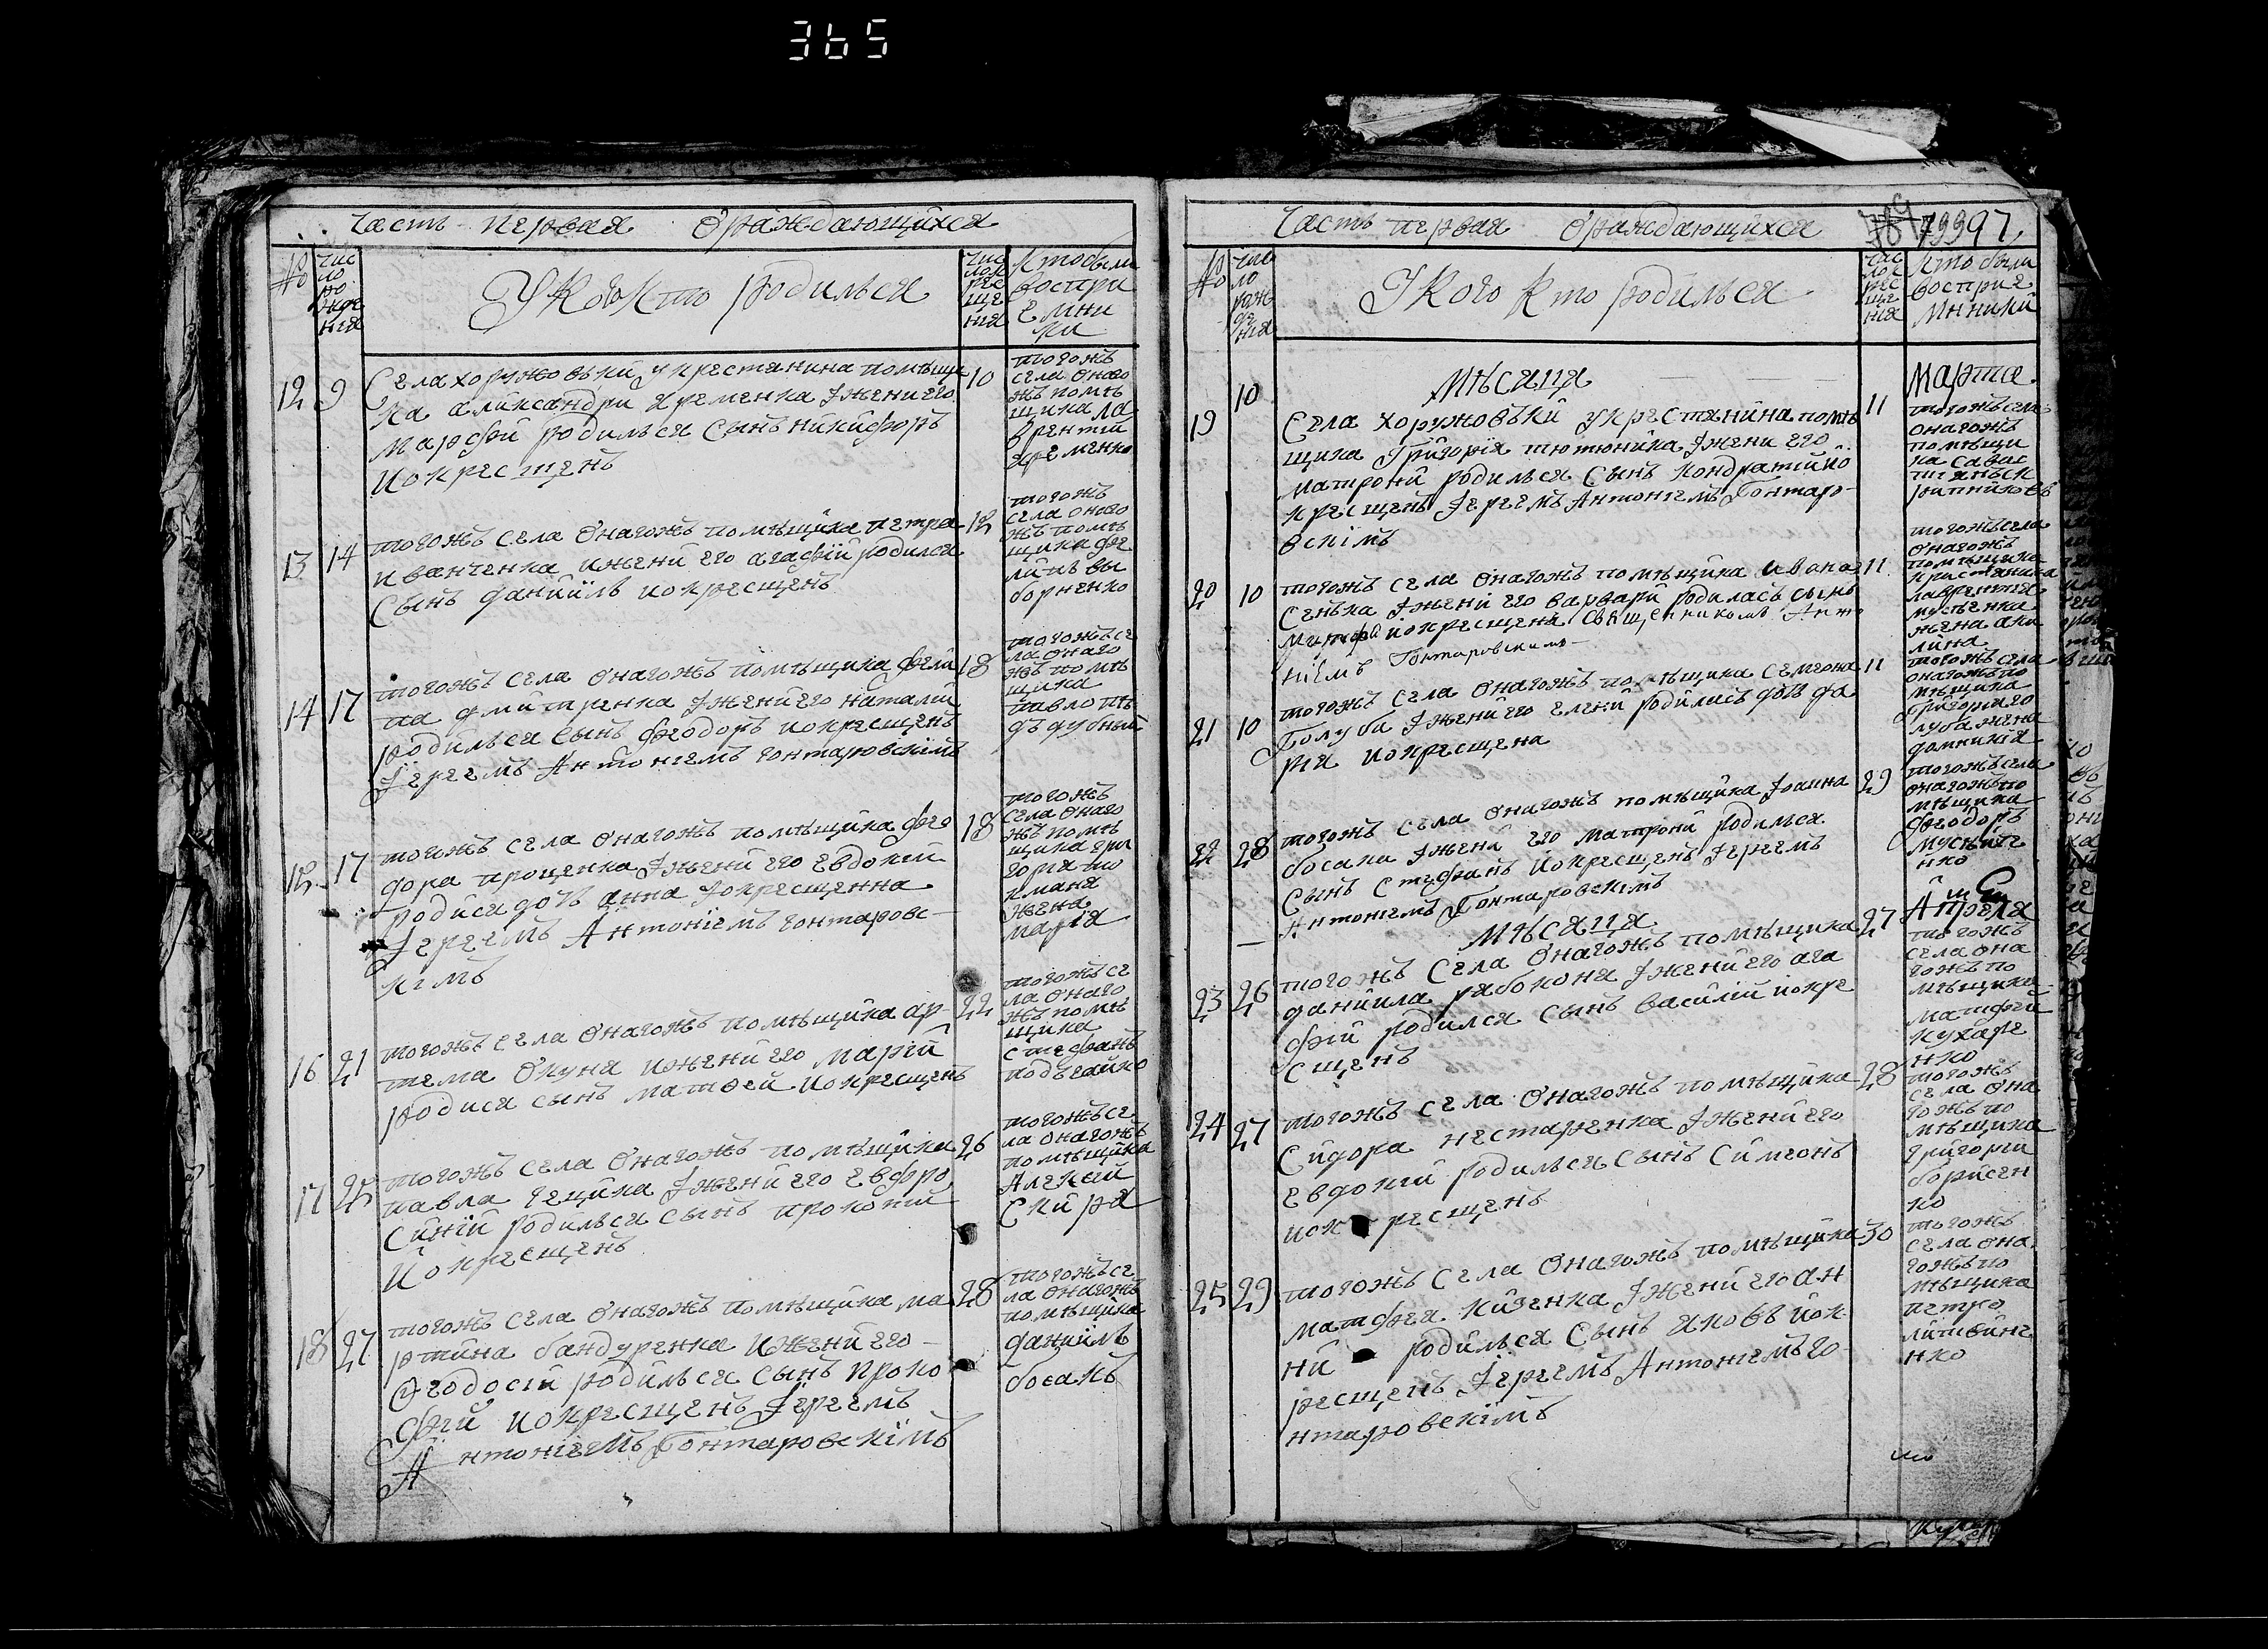 365
Часть первая О раждающихся
№
чис
ло
ро
жде
нїя
У Кого Кто родилься
чис
лок
рес
ще
нїя
Кто были
воспри
емни
ки
12 9
Села хоружовъки у крестянина помѣщи
ка аликсандри яременка Iжени его
Марфѣи родилься Сынъ никифоръ
и окрещенъ
10
тогожъ
села онаго
жъ помѣ
щика ла
врентiй
яременко
13 14
тогожъ села Онагожъ помѣщика петра
иванченка ижени его агафiи родился
Сынъ данiилъ иокресщенъ
15
тогожъ
села онаго
жъ помѣ
щика фи
липъ вы
борненко
14 17
тогожъ села Онагожъ помѣщика фили
па дмитренка Iжени его наталiи
родилься сынъ феодоръ иокресщенъ
Iереемъ Антонiемъ гонтаровскiмъ
18
тогожъ се
ла онаго
жъ помѣ
щика
павло пѣ
дъдубный
15 17
тогожъ села Онагожъ помѣщика фео
дора проценка Iжени его Евдокiи
родися дочь анна Iокресщенна
Iереемъ Антонiемъ гонтаровс
кiмъ
18
тогожъ
села онаго
жъ помѣ
щика гри
горiя то
жена
марiя
16 21
тогожъ села Онагожъ помѣщика ар
тема Окуня ижени его марiи
родися сынъ матфеи иокресщенъ
22
тогожъ се
ла онаго
жъ помѣ
щика
стефанъ
подъгайко
17 25
тогожъ села Онагожъ помѣщика
павла гецика Iжени его Евфро
синiи родилься сынъ прокопiй
И окресщенъ
26
тогожъ се
ла онагожъ
помѣщика
Алексiй
Скира
18 27
тогожъ села Онагожъ помѣщика ма
ртина бандуренка ижени его
Ѳеодосiи родилься сынъ Проко
фiй иокресщенъ Iереемъ
Антонiемъ Гонтаровскiмъ
28
тогожъ се
ла онагожъ
помѣщика
данiилъ
босакъ
Часть первая О раждающихся
79997
№
чис
ло
рож
де
нїя
У Кого Кто родилься
чис
лок
рес
ще
нїя
Кто были
восприе
мники
Мѣсяца Марта
19 10
Села хоружовъки у крестянина помѣ
щика Григорiя тютюника Iжени его
матрони родилься Сынъ кондратiй ио
кресщенъ Iереемъ Антонiемъ Гонтаро
вскiмъ
11
тогожъ села
онагожъ
помѣщи
ка савас
20 10
тогожъ села онагожъ помѣщика ивана
Сенька Iжени его варвари родилась сынъ
иокресщена Священикомъ Анто
нiемъ Гонтаровскимъ
11
тогожъ села
онагожъ
помѣщика
кристянина
лаврентiя
жена аки
лина
21 10
тогожъ села онагожъ помѣщика семеона
Голуба Iжени его елени родилась дочь да
рiя иокресщена
11
тогожъ села
онагожъ по
мѣщика
григория го
луба жена
домникiя
22 28
тогожъ села онагожъ помѣщика Iоанна
босака Iжени его матрони родилься
Сынъ Стефанъ иокресщенъ Iереемъ
Антонiемъ Гонтаровскiмъ
29
тогожъ села
онагожъ по
мѣщика
феодоръ
мусѣйе
нко
Мѣсяца Апреля
23 26
тогожъ Села Онагожъ помѣщика
данiила рябоконя Iжени его ага
фiи родился Сынъ василiй иокре
сщенъ
27
тогожъ
села она
гожъ по
мѣщика
Матфей
кухаре
нко
24 27
тогожъ села Онагожъ помѣщика
Сидора нестаренка Iжени его
евдокiи родилься Сынъ Симеонъ
иокресщенъ
28
тогожъ
села она
гожъ по
мѣщика
григории
борисен
ко
25 29
тогожъ Села Онагожъ помѣщика
матфея кизенка Iжени его ан
ни родилься Сынъ яковъ иок
ресщенъ Iереемъ Антонiемъ го
нтаровскiмъ
30
тогожъ
села она
гожъ по
мѣщика
петро
литвине
нко